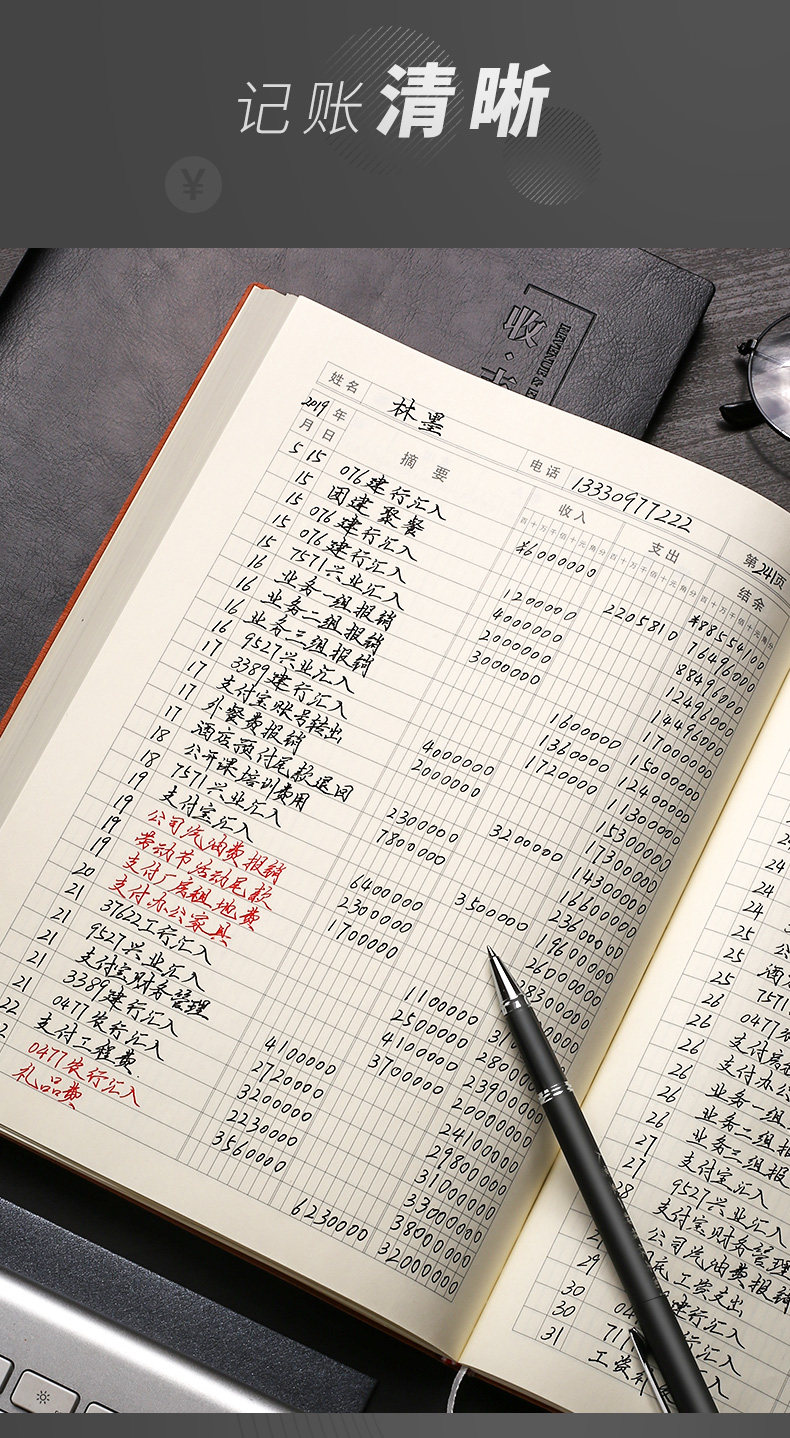 记账清晰
¥
收·支
REVENUE & E
姓名 林墨 电话 13330977222 第241页
2019年 摘要 收入 支出 结余
月 日 百十万千佰十元角分 百十万千佰十元角分 百十万千佰十元角分
5 15 076建行汇入 ¥6000000 ¥88554100
15 团建聚餐 2205810
15 076建行汇入 1200000
15 076建行汇入 4000000
15 7571兴业汇入 2000000
16 业务一组报销
16 业务二组报销
16 业务三组报销
16 9527兴业汇入
17 3389建行汇入
17 支付宝账号转出
17 外餐费报销
17 酒店预付尾款退回
18 公开课培训费用
18 7571兴业汇入
19 支付宝汇入
19 公司汽油费报销
19 劳动节活动尾款
19 支付厂房租地费
20 支付办公家具
21 37622工行汇入
21 9527兴业汇入
21 支付宝财务管理
21 3389建行汇入
21 0477农行汇入
22 支付工程费
0477农行汇入
礼品费
3000000
1600000
1360000
1720000
4000000
2000000
3200000
2300000
7800000
3500000
6400000
2300000
1700000
1100000
2500000
4100000
3700000
4100000
2720000
3200000
2230000
3560000
6230000
76496000
88496000
12496000
14496000
17000000
15000000
12400000
11300000
15300000
17300000
14300000
16600000
23600000
19600000
26000000
28300000
23900000
20000000
24100000
29800000
31000000
33000000
38000000
32000000
24
24
24
25
25
25
26
26
26
26
26
27
27
28
29
30
30
31
7571
0477农
支付办公
业务一组
业务二组报
业务三组报
支付宝汇入
9527兴业汇入
支付宝财务管理
公司汽油费报销
工资支出
建行汇入
汇入